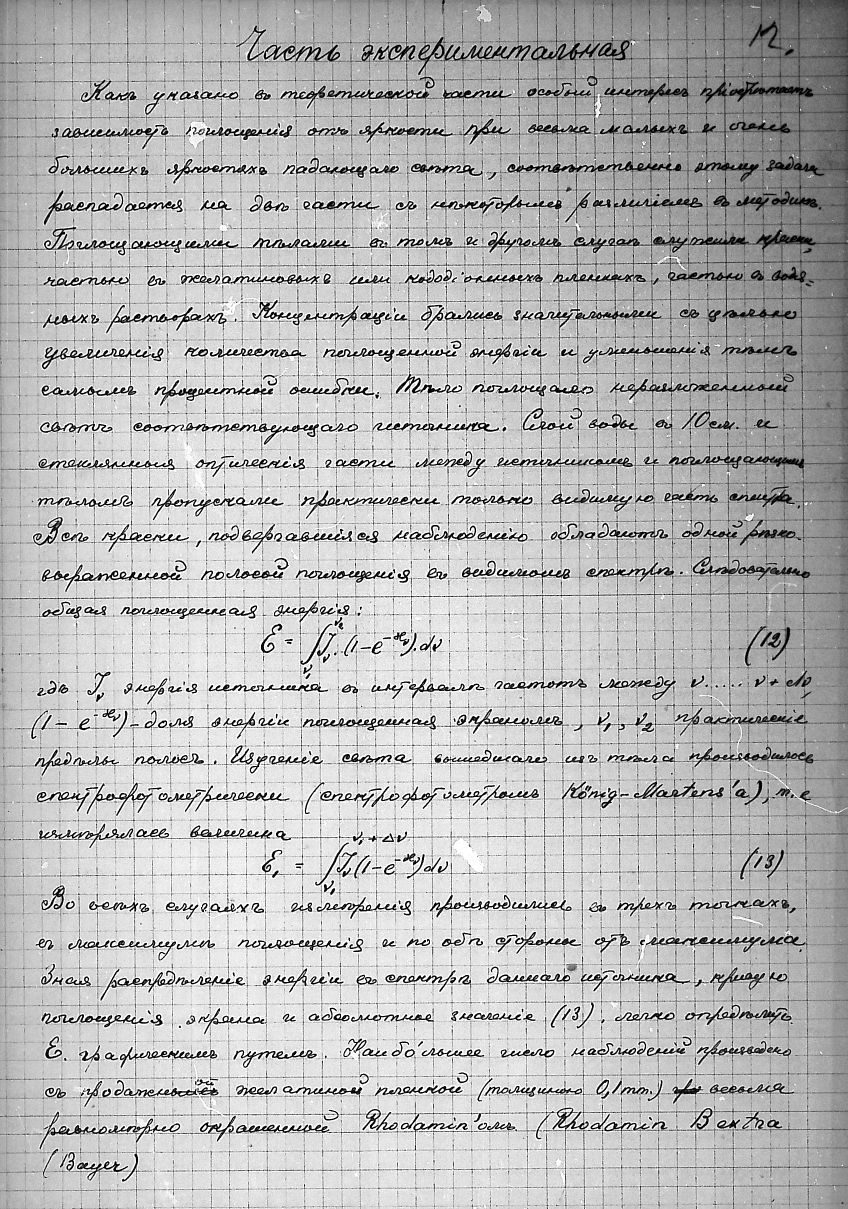 Часть экспериментальная
12.
Какъ указано въ теоретической части особый интересъ пріобрѣтаетъ
зависимость поглощенія отъ яркости при весьма малыхъ и очень
большихъ яркостяхъ падающаго свѣта, соотвѣтственно этому задача
распадается на двѣ части съ нѣкоторымъ различіемъ въ методикѣ.
Поглощающими тѣлами въ томъ и другомъ случаѣ служили краски,
частью въ желатиновыхъ или колодіонныхъ пленкахъ, частью въ водя-
ныхъ растворахъ. Концентраціи брались значительными съ цѣлью
увеличенія количества поглощенной энергіи и уменьшенія тѣмъ
самымъ процентной ошибки. Тѣло поглощало неразложенный
свѣтъ соотвѣтствующаго источника. Слой воды въ 10 см. и
стеклянныя оптическія части между источникомъ и поглощающимъ
тѣломъ пропускали практически только видимую часть спектра.
Всѣ краски, подвергавшіяся наблюденію обладаютъ одной рѣзко-
выраженной полосой поглощенія въ видимомъ спектрѣ. Слѣдовательно
общая поглощенная энергія:
E = ∫_{ν₁}^{ν₂} J_ν (1-e^{-ϰ_ν}).dν (12)
гдѣ J_ν энергія источника въ интервалѣ частотъ между ν ..... ν + dν,
(1 - e^{-ϰ_ν}) - доля энергіи поглощенная экраномъ, ν₁, ν₂ практическіе
предѣлы полосъ. Изученіе свѣта вышедшаго изъ тѣла производилось
спектрофотометрически (спектрофотометромъ König-Martens'a), т.е
измѣрялась величина
E₁ = ∫_{ν₁}^{ν₁+Δν} J_ν (1-e^{-ϰ_ν}) dν (13)
Во всѣхъ случаяхъ измѣренія производились въ трехъ точкахъ,
въ максимумѣ поглощенія и по обѣ стороны отъ максимума.
Зная распредѣленіе энергіи въ спектрѣ даннаго источника, кривую
поглощенія экрана и абсолютное значеніе (13), легко опредѣлить
E. графическимъ путемъ. Наибо́льшее число наблюденій произведено
съ продажной желатиной пленкой (толщиною 0,1 mm.) весьма
равномѣрно окрашенной Rhodamin'омъ. (Rhodamin B extra
(Bayer)